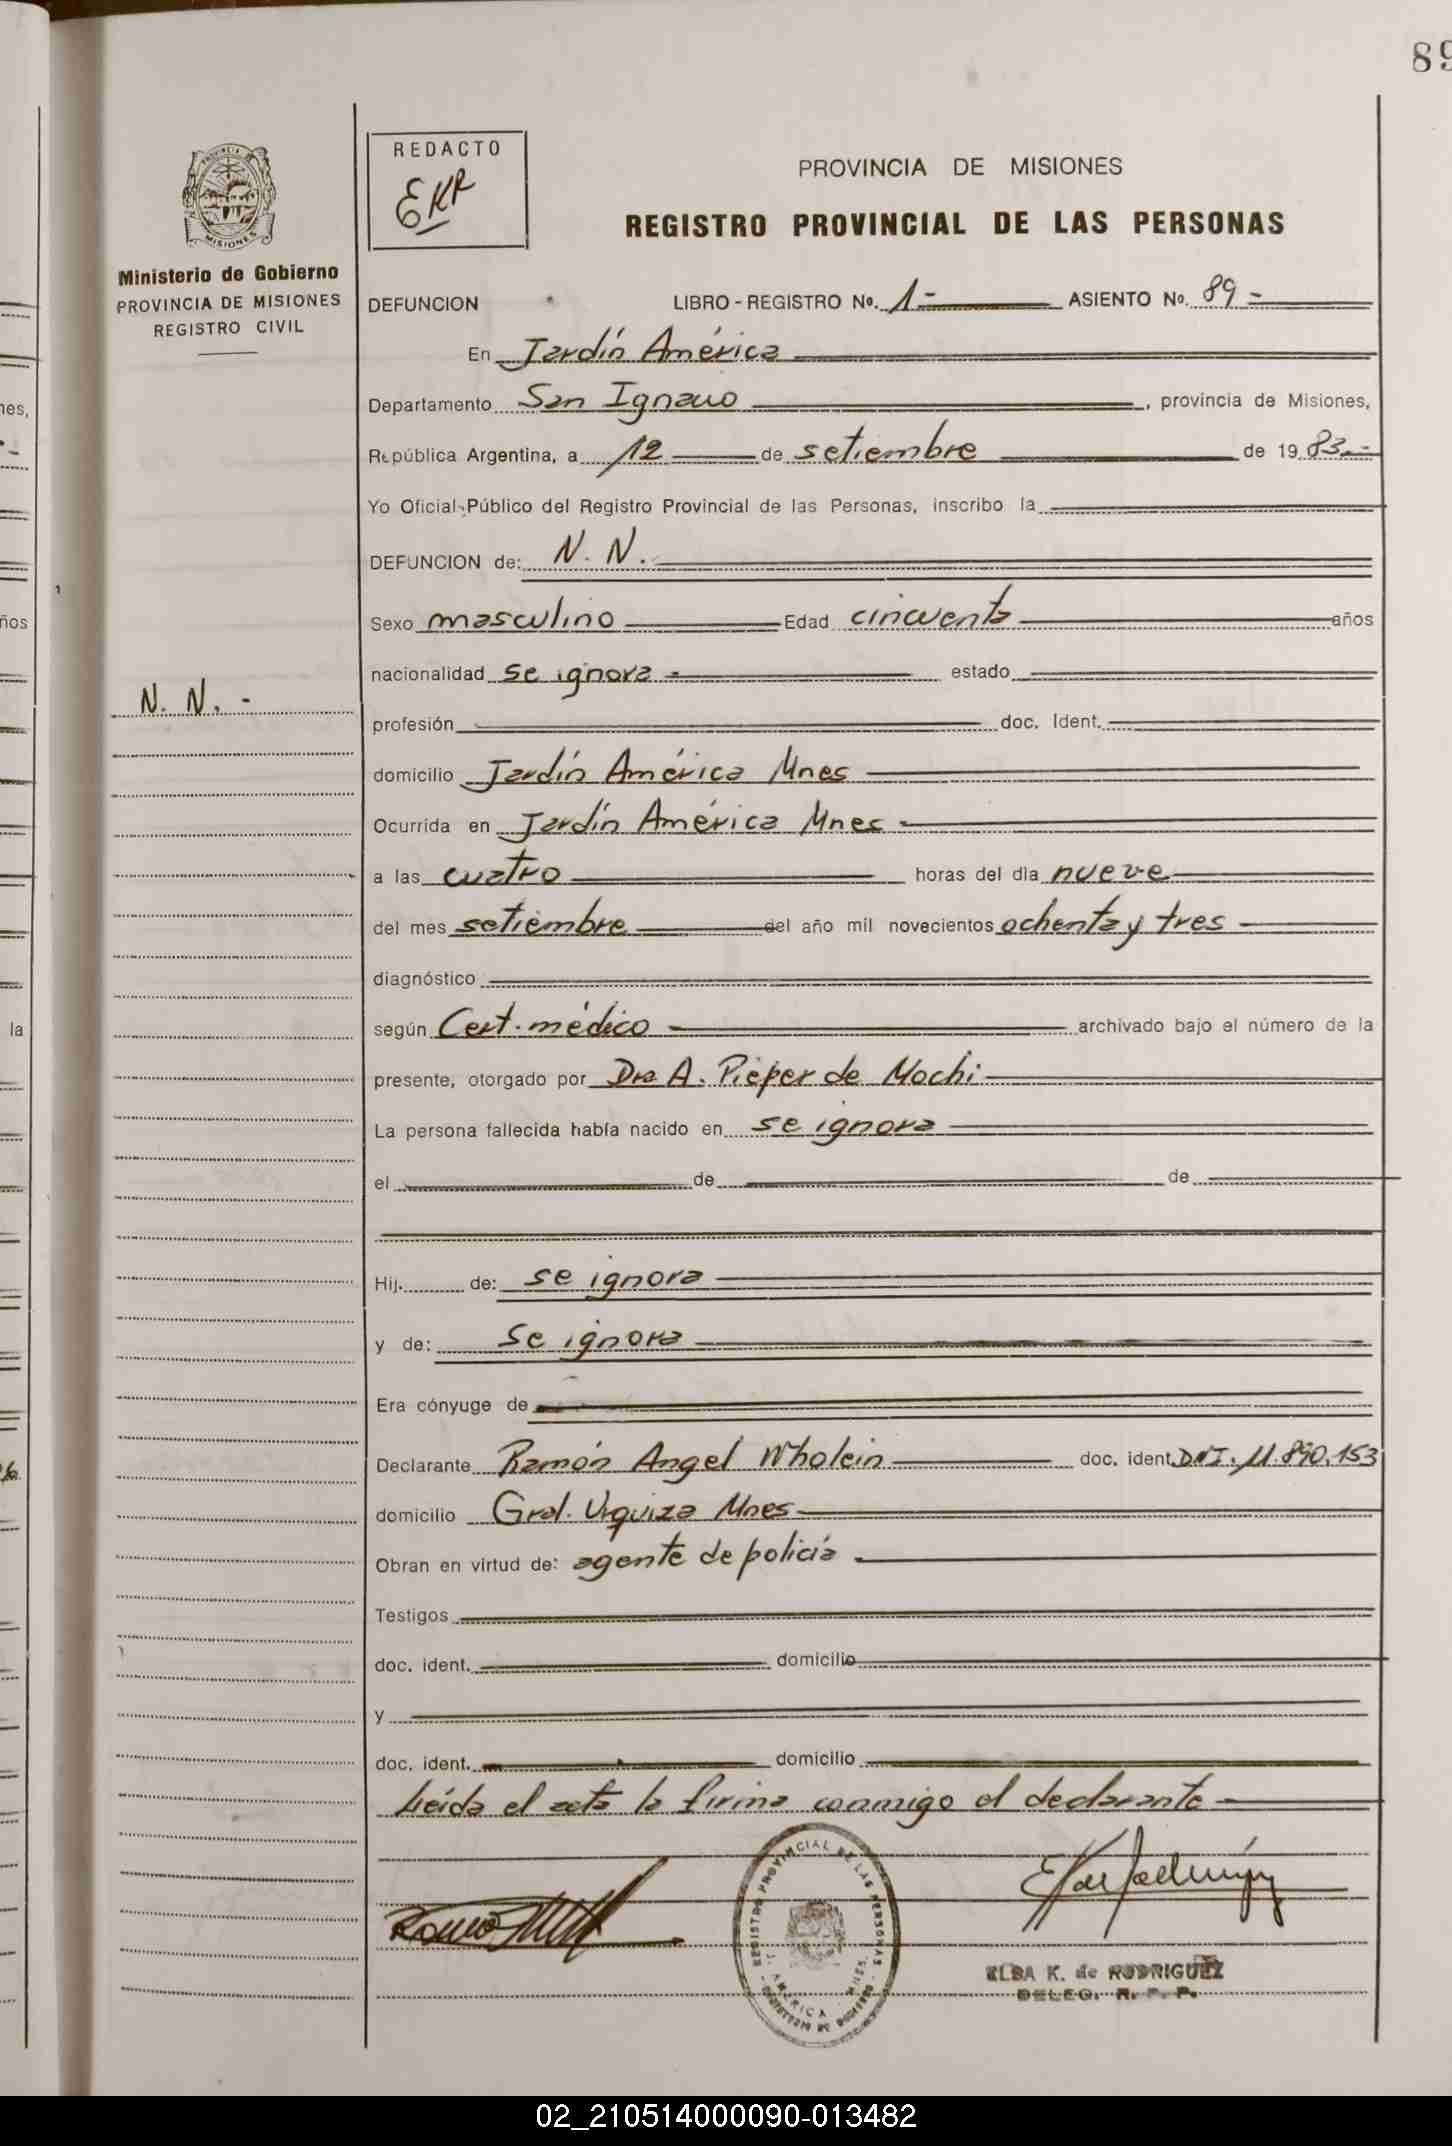 89
REDACTO
EKR
PROVINCIA DE MISIONES
REGISTRO PROVINCIAL DE LAS PERSONAS
PROVINCIA DE
MISIONES
Ministerio de Gobierno
PROVINCIA DE MISIONES
REGISTRO CIVIL
DEFUNCION LIBRO - REGISTRO Nº. 1- ASIENTO Nº. 89-
En Jardín América
Departamento San Ignacio, provincia de Misiones,
República Argentina, a 12 de setiembre de 1983.-
Yo Oficial Público del Registro Provincial de las Personas, inscribo la
DEFUNCION de: N. N.
Sexo masculino Edad cincuenta años
nacionalidad se ignora - estado
N. N. -
profesión doc. Ident.
domicilio Jardín América Mnes
Ocurrida en Jardín América Mnes
a las cuatro horas del día nueve
del mes setiembre del año mil novecientos ochenta y tres
diagnóstico
según Cert. médico archivado bajo el número de la
presente, otorgado por Dra A. Pieper de Mochi
La persona fallecida había nacido en se ignora
el de de
Hij. de: se ignora
y de: se ignora
Era cónyuge de
Declarante Ramón Angel Wholein doc. ident. DNI. 11.890.153
domicilio Gral. Urquiza Mnes
Obran en virtud de: agente de policía
Testigos
doc. ident. domicilio
y
doc. ident. domicilio
Leída el acta la firma conmigo el declarante
REGISTRO PROVINCIAL DE LAS PERSONAS
J. AMERICA - MNES.
ELSA K. de RODRIGUEZ
DELEG. R. P. P.
02_210514000090-013482